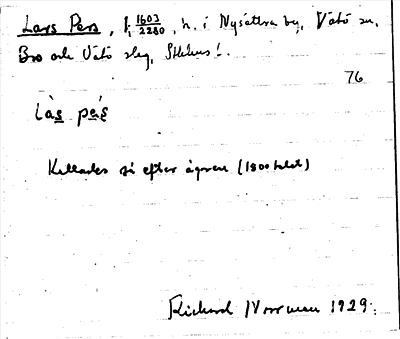 Lars Pers, f. 1603/2280, h. i Nysättra by, Vätö sn,
Bro och Vätö slg, Sthlms l.
76
Làs̲ pe̲ś
Kallades så efter ägaren (1800 talet)
Rickard Norrman 1929.